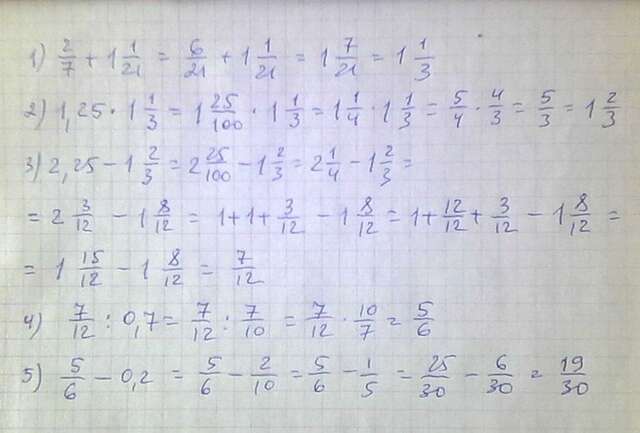 1) 2/7 + 1 1/21 = 6/21 + 1 1/21 = 1 7/21 = 1 1/3
2) 1,25 · 1 1/3 = 1 25/100 · 1 1/3 = 1 1/4 · 1 1/3 = 5/4 · 4/3 = 5/3 = 1 2/3
3) 2,25 - 1 2/3 = 2 25/100 - 1 2/3 = 2 1/4 - 1 2/3 =
= 2 3/12 - 1 8/12 = 1+1+ 3/12 - 1 8/12 = 1+ 12/12 + 3/12 - 1 8/12 =
= 1 15/12 - 1 8/12 = 7/12
4) 7/12 : 0,7 = 7/12 : 7/10 = 7/12 · 10/7 = 5/6
5) 5/6 - 0,2 = 5/6 - 2/10 = 5/6 - 1/5 = 25/30 - 6/30 = 19/30